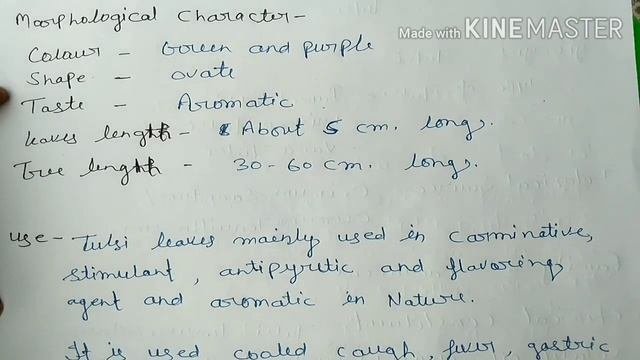 Made with KINEMASTER
Morphological Character-
Colour - Green and purple
Shape - ovate
Taste - Aromatic
leaves length - About 5 cm. long.
Tree length - 30-60 cm. long.
use - Tulsi leaves mainly used in Carminative,
stimulant, antipyretic and flavoring
agent and aromatic in Nature.
It is used coaled caugh, fever, gastric